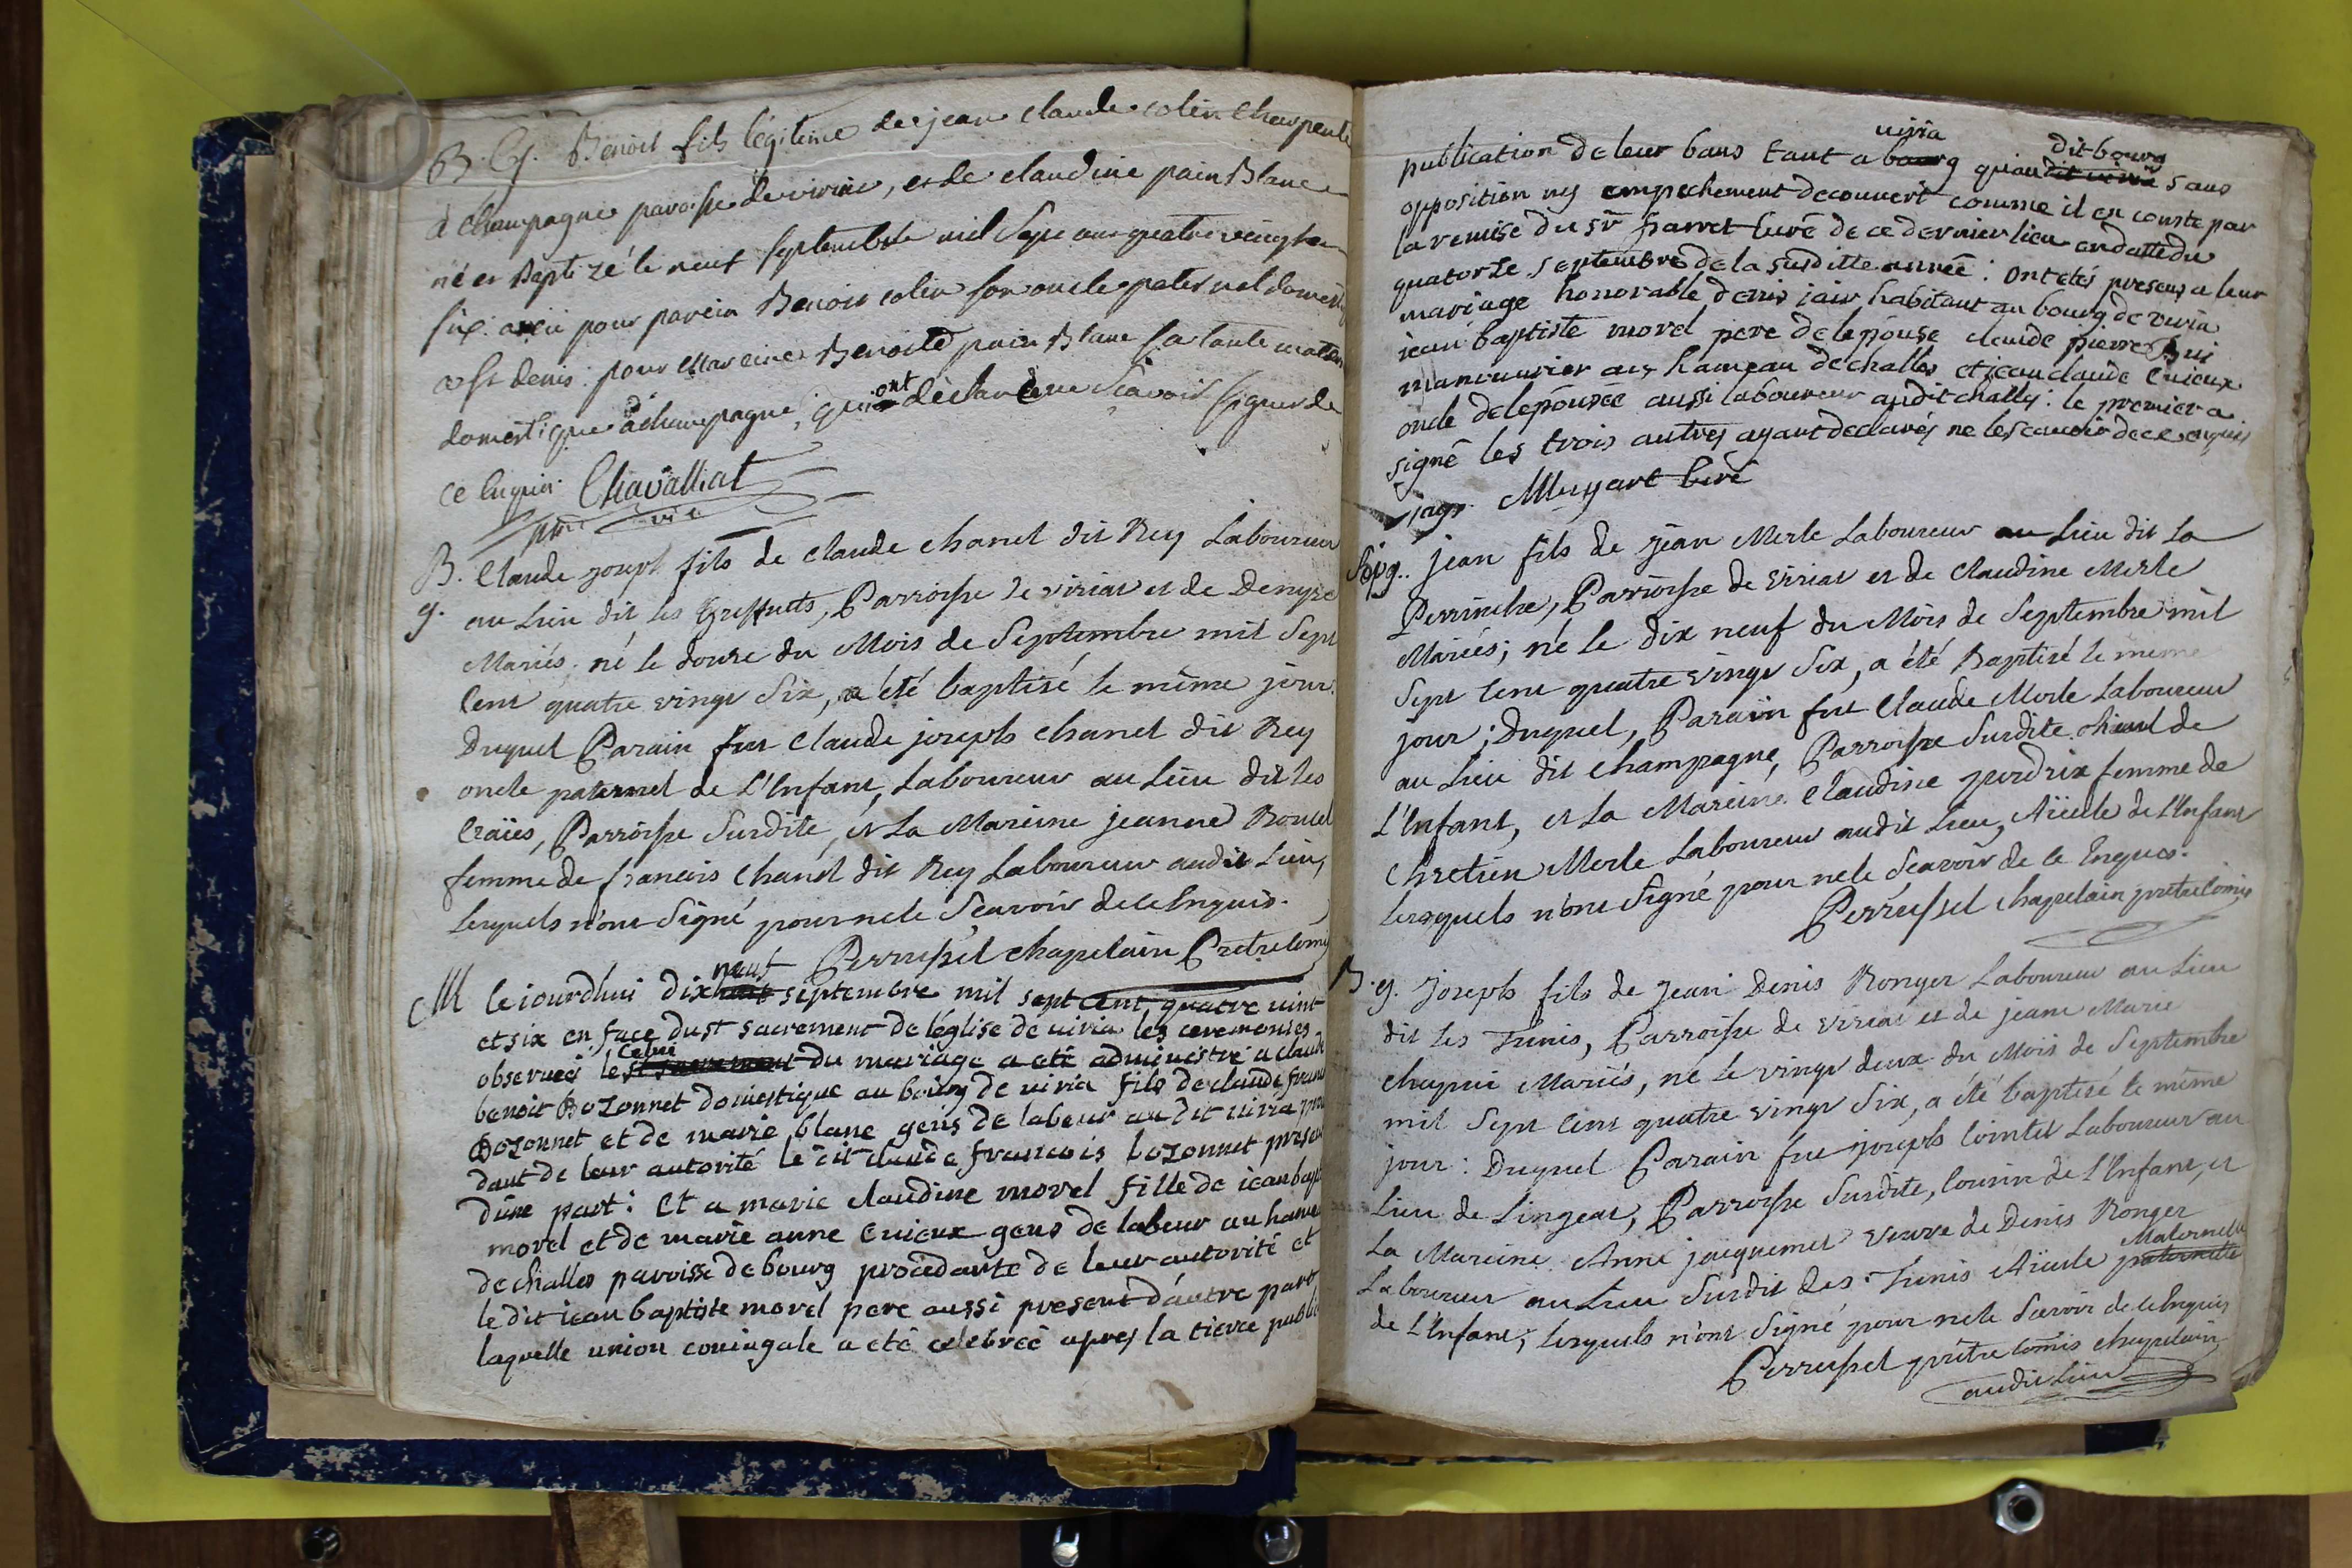 B. G. Benoit fils légitime de jean claude colin Charpent
a champagne paroisse de viriac, et de claudine pain Blanc
né et Baptizé le neuf septembre mil Sept cent quatre vingt
six: a eu pour parein Benoit colin son oncle paternel domest
a st denis: pour Mareine Benoite pain Blanc sa tante matern
domestique a champagne, qui ont déclaré ne sçavoir signer de
ce enquis. Chavalliat
B. Claude joseph fils de Claude Chanel dit Rey Laboureur
g. au Lieu dit les Greffets, Parroisse de viriat et de Denyse
Mariés. né le douze du Mois de Septembre mil Sept
Cent quatre vingt Six, a été baptisé le même jour.
Duquel Parain fut Claude joseph chanel dit Rey
oncle paternel de L'Enfant, Laboureur au Lieu dit les
Craïes, Parroisse Susdite, et La Mareine jeanne Roncel
femme de francois Chanel dit Rey Laboureur audit Lieu,
Lesquels n'ont Signé pour ne le Sçavoir de ce Enquis.
Perrussel chapelain Pretre Comis
M le iourdhui dix neuf septembre mil sept cent quatre vint
et six en face du st sacrement de léglise de viria les ceremonies
observeés le celui du mariage a eté administré a claude
benoit Bozonnet domestique au bourg de viria fils de claude franc
Bozonnet et de marie blanc gens de labeur au dit viria
dant de leur autorité le dit claude francois bozonnet present
dune part: Et a marie claudine morel fille de iean bapt
morel et de marie anne Cuieux gens de labeur au hame
de challes paroisse de bourg procedante de leur autorité et
le dit iean baptiste morel pere aussi present dautre part
laquelle union coniugale a eté celebreé apres la tierce publi
publication de leur bans tant a viria qu'au dit bourg sans
opposition ny empechement decouvert comme il en conste par
la remise du sr frarret Curé de ce dernier lieu en datte du
quatorze septembre de la susditte anneé: Ont etés presens a leur
mariage honnorable denis iair habitant au bourg de viria
iean baptiste morel pere de lepouse claude pierre Bui
manouvrier au hameau de challes et iean claude Cuieux
oncle de lepouseé aussi laboureur au dit challes: le premier a
signé les trois autres ayant declarés ne le scavoir de ce enquis
jayr. Muyart Curé
B. g. jean fils de jean Merle Laboureur au Lieu dit La
Perrinche, Parroisse de viriat et de Claudine Merle
Mariés; né le dix neuf du Mois de Septembre mil
Sept Cent quatre vingt Six, a été Baptisé le meme
jour; Duquel, Parain fut Claude Merle Laboureur
au Lieu dit Champagne, Parroisse Susdite, oncle de
L'Enfant, et La Mareine Claudine perdrix femme de
Chretien Merle Laboureur audit Lieu, Aïeule de l'Enfant
Lesquels n'ont Signé pour ne le Sçavoir de ce Enquis.
Perrussel Chapelain pretre Comis
B. g. Joseph fils de Jean Denis Ronger Laboureur au Lieu
dit les Tunis, Parroisse de viriat et de jeane Marie
chapui Mariés, né le vingt deux du Mois de Septembre
mil Sept Cent quatre vingt Six, a été baptisé le même
jour: Duquel Parain fut joseph Cointet Laboureur au
Lieu de Lingeat, Parroisse Susdite, Cousin de L'Enfant, et
La Mareine Anne jacquemet veuve de Denis Ronger
Laboureur au Lieu Susdit des Tunis Aïeule Maternelle
de L'Enfant; Lesquels n'ont Signé pour ne le Savoir de ce Enquis
Perrussel prêtre Comis chapelain
audit Lieu